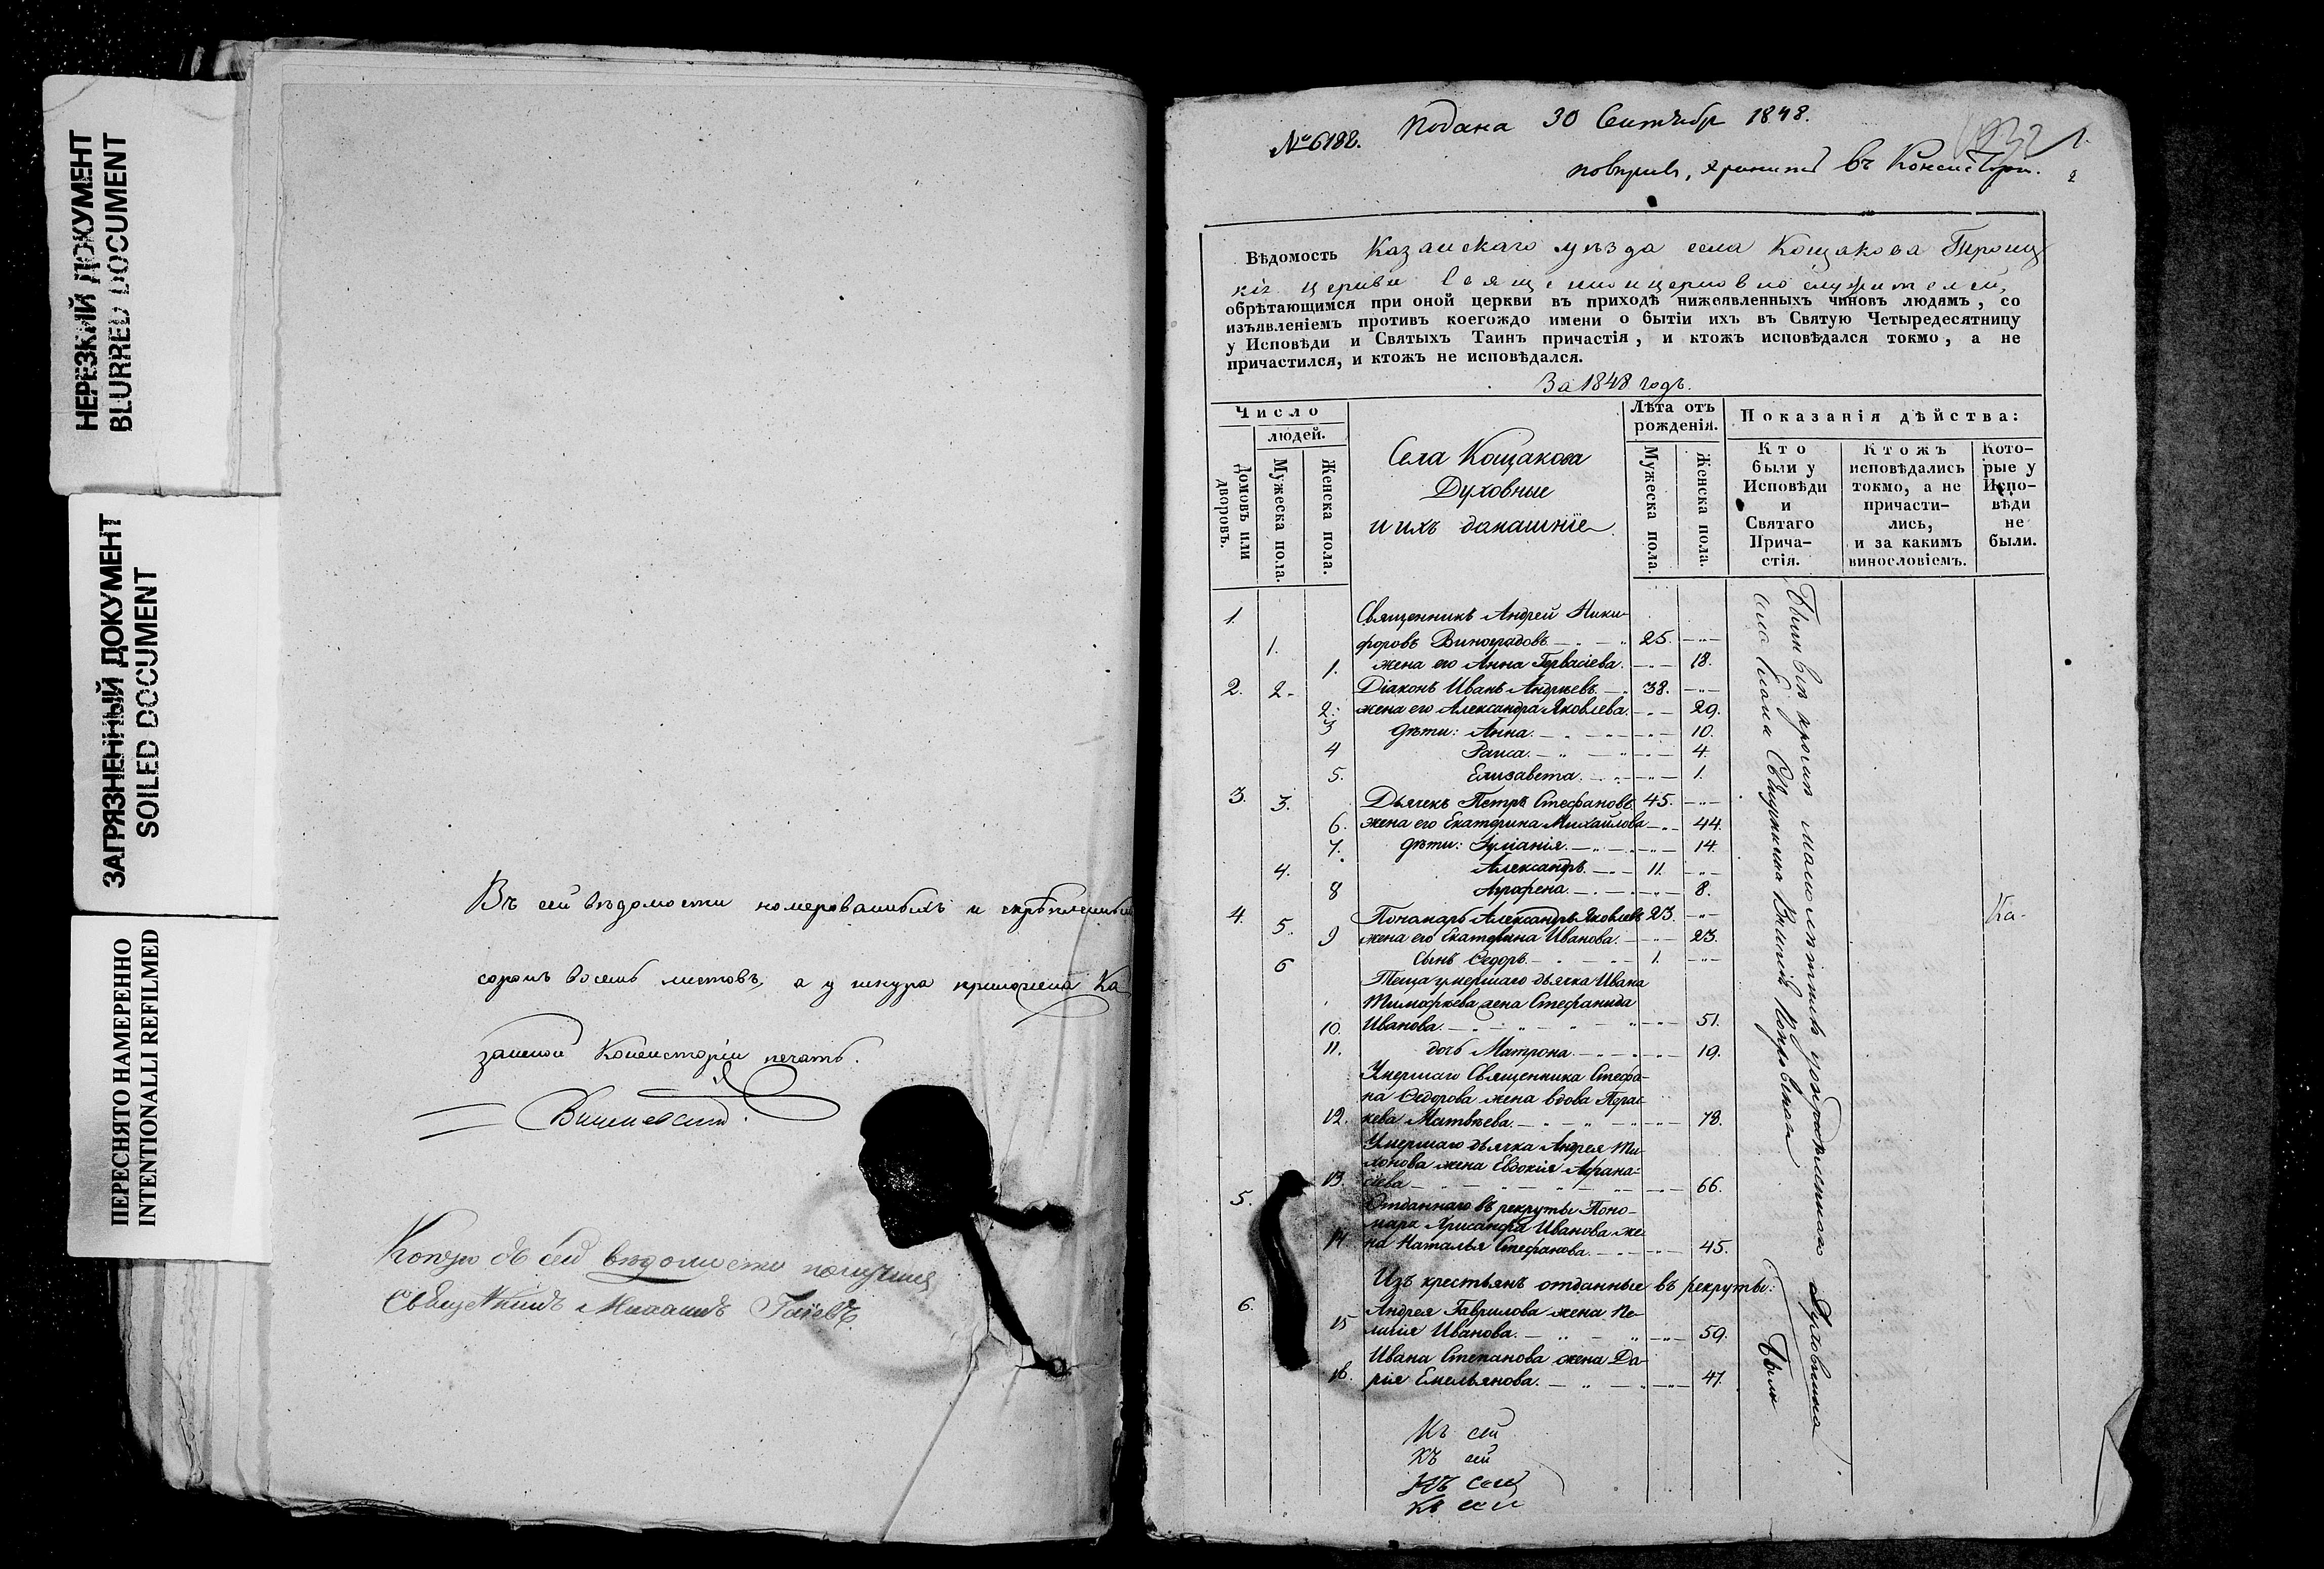 НЕРЕЗКИЙ ДОКУМЕНТ
BLURRED DOCUMENT
ЗАГРЯЗНЕННЫЙ ДОКУМЕНТ
SOILED DOCUMENT
ПЕРЕСНЯТО НАМЕРЕННО
INTENTIONALLI REFILMED
Въ сей вѣдомости номерованныхъ и скрѣпленныхъ
сорокъ восемь листовъ, а у шнура приложена Ка
занской Консисторіи печать.
Копую съ сей вѣдомости получилъ
Священникъ Михаилъ
№ 6182. Подана 30 Сентября 1848.
1.
въ Консисторіи.
Вѣдомость Казанскаго уѣзда села Кощакова Троиц
кія церкви священноцерковнослужителей,
обрѣтающимся при оной церкви въ приходѣ нижеявленныхъ чиновъ людямъ, со
изъявленіемъ противъ коегождо имени о бытіи ихъ въ Святую Четыредесятницу
у Исповѣди и Святыхъ Таинъ причастія, и ктожъ исповѣдался токмо, а не
причастился, и ктожъ не исповѣдался.
За 1848 годъ.
Число
людей.
Домовъ или дворовъ.
Мужеска пола.
Женска пола.
Села Кощакова
Духовные
и ихъ домашніе
Лѣта отъ рожденія.
Мужеска пола.
Женска пола.
Показанія дѣйства:
Кто были у Исповѣди и Святаго Причастія.
Ктожъ исповѣдались токмо, а не причастились, и за какимъ винословіемъ.
Которые у Исповѣди не были.
1. Священникъ Андрей Ники-
1. форовъ Виноградовъ 25.
1. жена его Анна Гервасіева. 18.
2. 2. Діаконъ Иванъ Андреевъ 38.
2. жена его Александра Яковлева. 29.
3 дѣти: Анна. 10.
4 Раиса. 4.
5. Елизавета. 1.
3. 3. Дьячекъ Петръ Стефановъ. 45.
6. жена его Екатерина Михайлова 44.
7. дѣти: Іуліанія. 14.
4. Александръ. 11.
8 Аграфена. 8.
4. 5. Понамарь Александръ Яковлевъ 23. Ка-
9 жена его Екатерина Иванова. 23.
6 сынъ Ѳедоръ. 1.
Теща умершаго дьячка Ивана
Тимофеева жена Стефанида
10. Иванова. 51.
11. дочь Матрона. 19.
Умершаго Священника Стефа-
на Ѳедорова жена вдова Парас-
12. кева Матвѣева. 78.
Умершаго дьячка Андрея Ти-
хонова жена Евдокия Афана-
13. сіева 66.
5. Отданнаго въ рекруты Поно-
маря Хрисанфа Иванова же-
14 на Наталья Стефанова. 45.
Изъ крестьянъ отданные въ рекруты:
6. Андрея Гаврилова жена Пе-
15 лагія Иванова. 59.
Ивана Степанова жена Да-
16. рія Емельянова. 47.
Были всѣ кромѣ малолѣтнихъ
Были
Къ сей
Къ сей
Къ сей
Къ сей